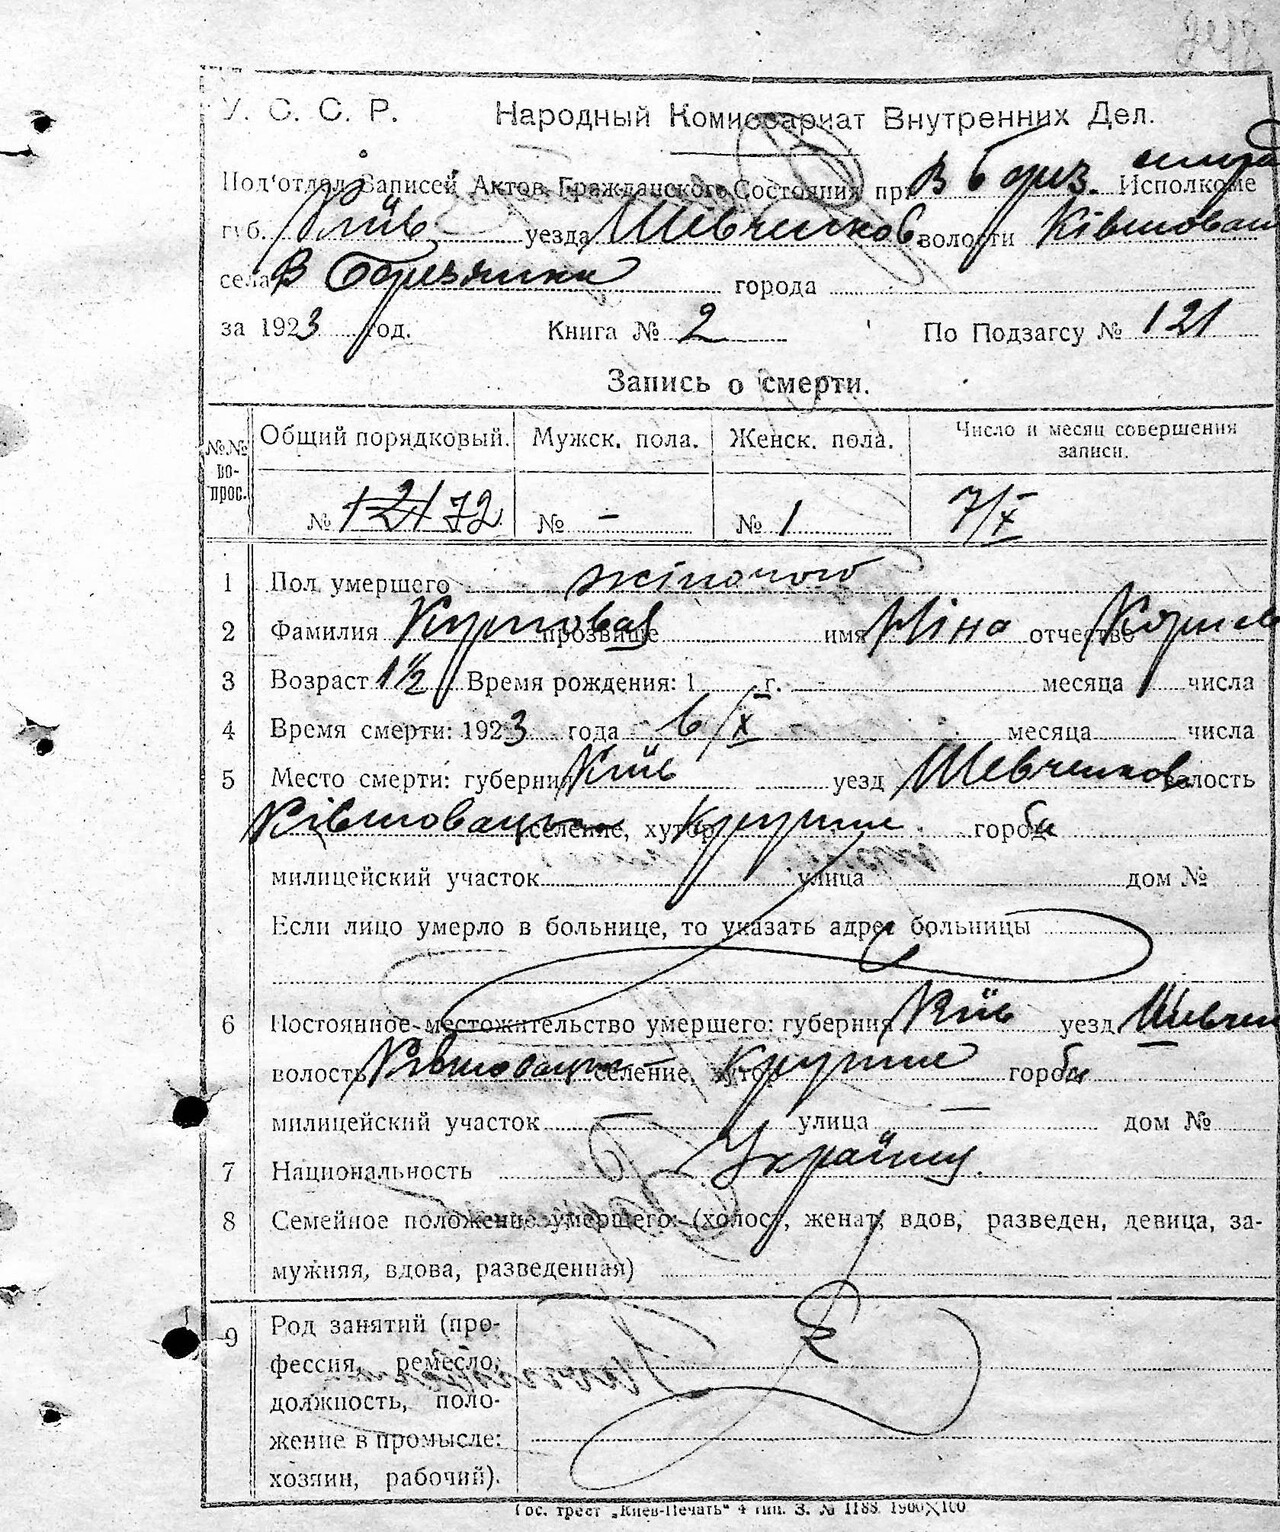 У. С. С. Р. Народный Комиссариат Внутренних Дел.
Под'отдел Записей Актов Гражданского Состояния при В Берез. Исполкоме
губ. Київ уезда Шевченков волости Ківшоват
села В Березянка города
за 1923 год. Книга № 2 По Подзагсу № 121
Запись о смерти.
№№ вопрос. Общий порядковый. Мужск. пола. Женск. пола. Число и месяц совершения записи.
№ 121 72 № - № 1 7/X
1 Пол умершего жіночого
2 Фамилия прозвище имя Ніна отчество
3 Возраст 1½ Время рождения: 1 г. месяца числа
4 Время смерти: 1923 года 6/X месяца числа
5 Место смерти: губерния Київ уезд Шевченков волость
Ківшовацьк селение, хутор Крутые город
милицейский участок улица дом №
Если лицо умерло в больнице, то указать адрес больницы
6 Постоянное местожительство умершего: губерния Київ уезд Шевчен
волость Ківшовацьк селение, хутор Крутые город
милицейский участок — улица — дом №
7 Национальность
8 Семейное положение умершего: (холост, женат, вдов, разведен, девица, за-
мужняя, вдова, разведенная)
9 Род занятий (про-
фессия, ремесло,
должность, поло-
жение в промысле:
хозяин, рабочий).
Гос. трест „Киев-Печать" 4 тип. З. № 1188. 1900×100